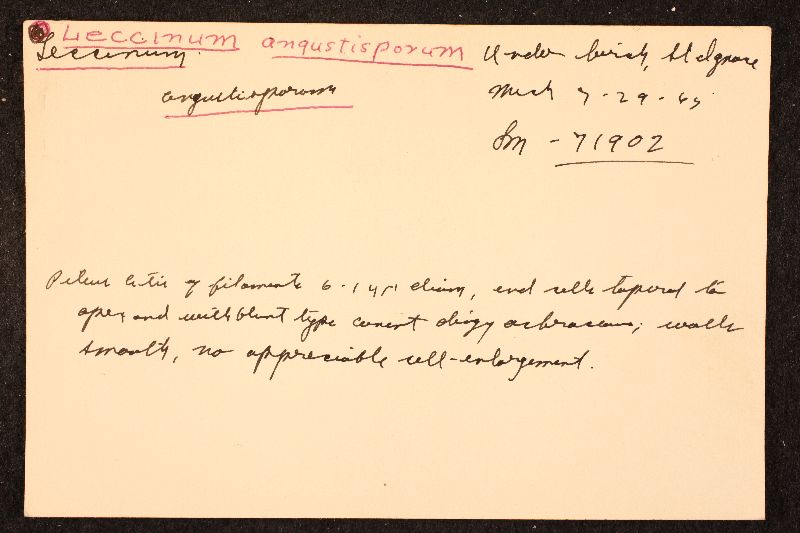 Leccinum angustisporum
Leccinum
angustisporum
Under birch, St Ignace
Mich 7-29-65
Sm - 71902
Pileus cutis of filaments 6- diam, end cells tapered to
apex and with blunt type content dingy ochraceous; walls
smooth, no appreciable cell-enlargement.